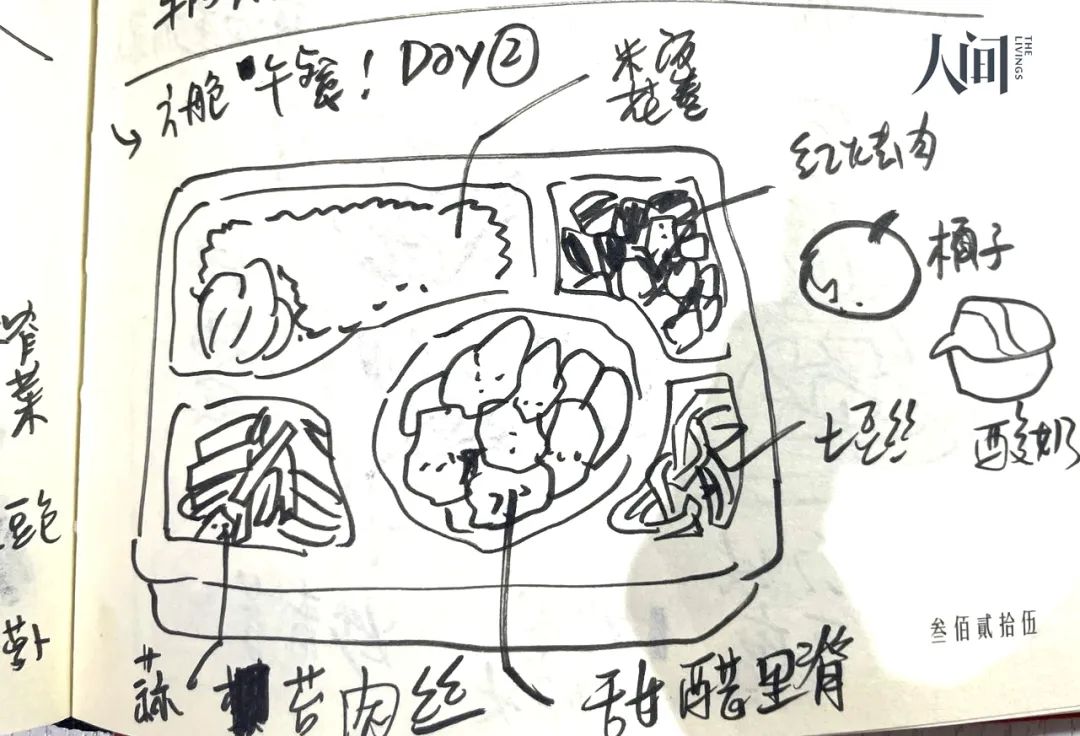 人间
THE LIVINGS
午餐！Day②
米饭
花卷
红烧肉
橘子
酸奶
土豆丝
榨菜
蒜苔肉丝
甜醋里脊
叁佰贰拾伍